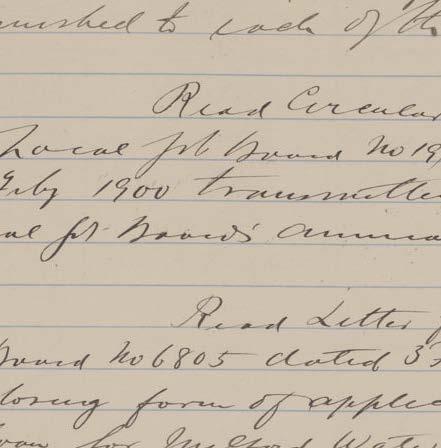 nished to each of th
Read Circular
Local Govt Board No 19
Feby 1900 transmitte
al Govt Board's annua
Read Letter f
Board No 6805 dated 3
losing form of applic
oan for Milford Wate